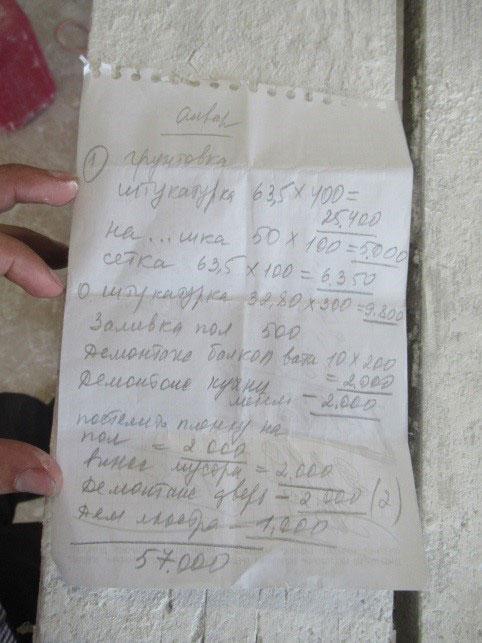 Анвар
1 грунтовка
штукатурка 63,5 × 400 =
25,400
на...шка 50 × 100 = 5,000
сетка 63,5 × 100 = 6,350
О штукатурка 32,80 × 300 = 9.800
Заливка пол 500
Демонтаж балкон вата 10 × 200
= 2,000
Демонтаж кухну
- 2,000
постелить пленку на
пол = 2 000
вынос мусора = 2,000
Демонтаж дверь - 2 000 (2)
Дем люстра - 1,000
57.000